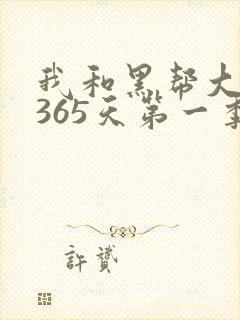 我和黑帮大
365天第一季
許贊